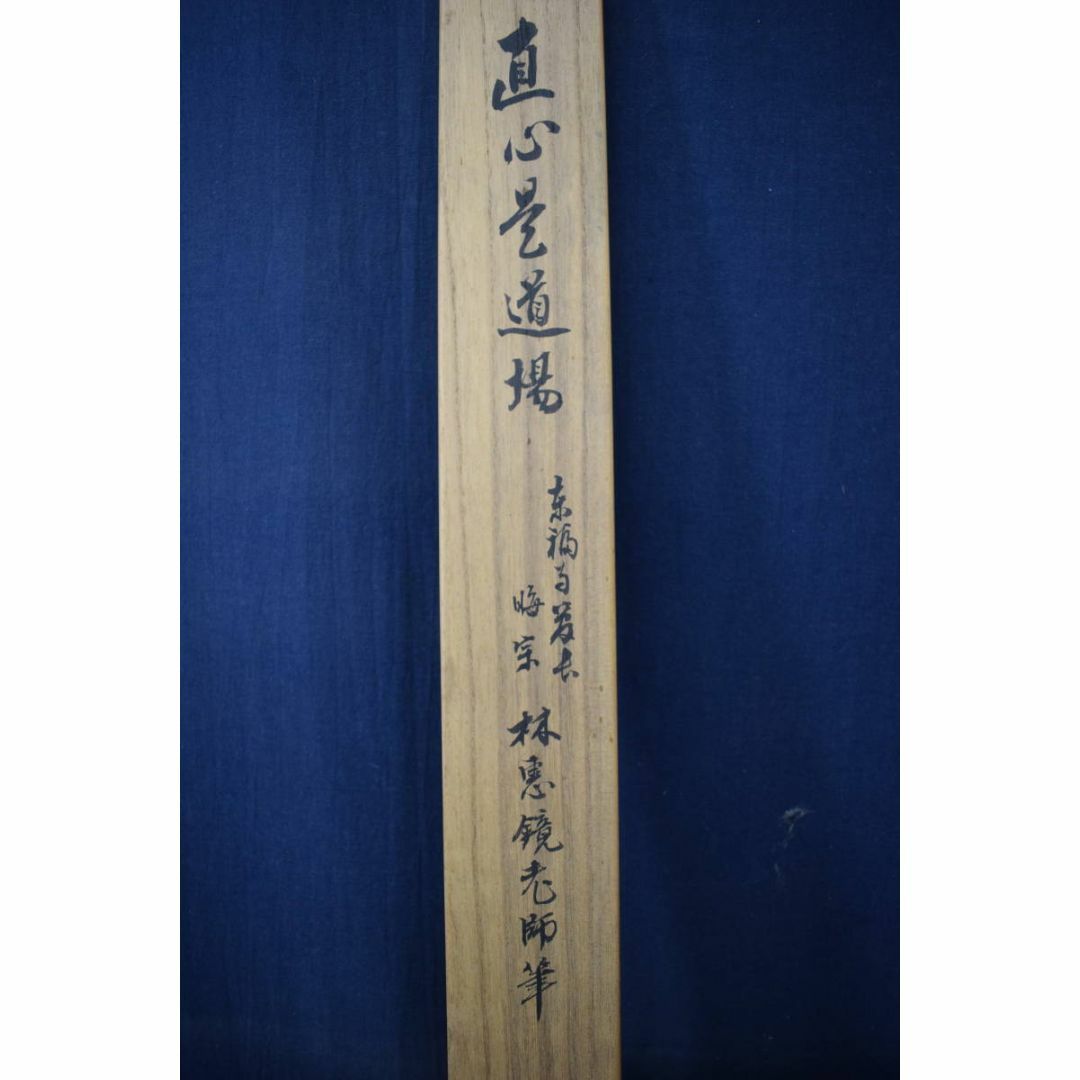 直心是道場
東福寺管長
晦宗
林恵鏡老師筆